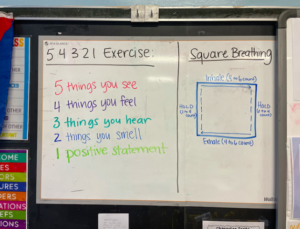 5 4 3 2 1 Exercise:
5 things you see
4 things you feel
3 things you hear
2 things you smell
1 positive statement
Square Breathing
Inhale (4 to 6 count)
HOLD
HOLD
Exhale (4 to 6 count)
OME
ES
ORS
URES
ERS
ATIONS
EFS
IONS